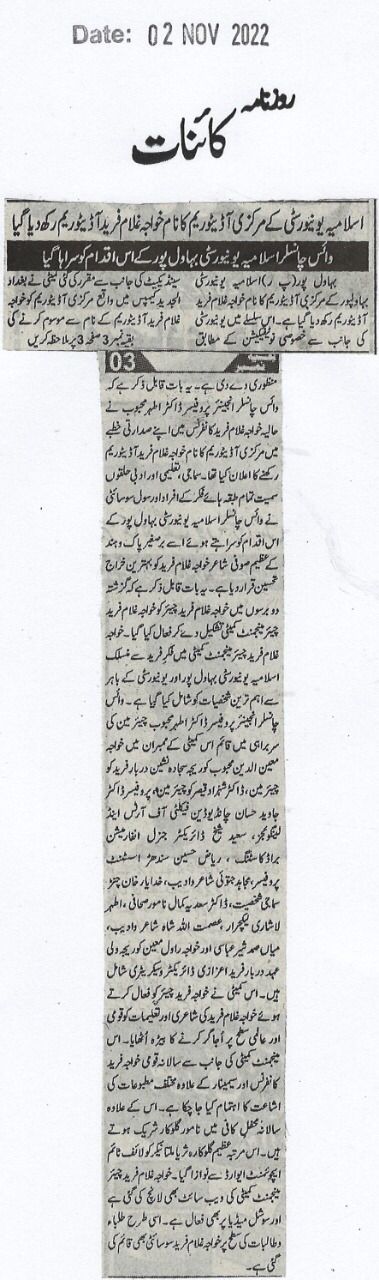 Date: 02 NOV 2022
روزنامہ
کائنات
اسلامیہ یونیورسٹی کے مرکزی آڈیٹوریم کا نام خواجہ غلام فرید آڈیٹوریم رکھ دیا گیا
وائس چانسلر اسلامیہ یونیورسٹی بہاول پور کے اس اقدام کو سراہا گیا
بہاول پور (پ ر) اسلامیہ یونیورسٹی
بہاولپور کے مرکزی آڈیٹوریم کا نام خواجہ غلام فرید
آڈیٹوریم رکھ دیا گیا ہے۔ اس سلسلے میں یونیورسٹی
کی جانب سے خصوصی نوٹیفکیشن کے مطابق
سینڈیکیٹ کی جانب سے مقرر کی گئی کمیٹی نے بغداد
الجدید کیمپس میں واقع مرکزی آڈیٹوریم کو خواجہ
غلام فرید آڈیٹوریم کے نام سے موسوم کرنے کی
بقیہ نمبر 3 صفحہ 3 پر ملاحظہ کریں
بقیہ نمبر 03
منظوری دے دی ہے۔ یہ بات قابل ذکر ہے کہ
وائس چانسلر انجینئر پروفیسر ڈاکٹر اطہر محبوب نے
حالیہ خواجہ غلام فرید کانفرنس میں اپنے صدارتی خطبے
میں مرکزی آڈیٹوریم کا نام خواجہ غلام فرید آڈیٹوریم
رکھنے کا اعلان کیا تھا۔ سماجی، تعلیمی اور ادبی حلقوں
سمیت تمام طبقہ ہائے فکر کے افراد اور سول سوسائٹی
نے وائس چانسلر اسلامیہ یونیورسٹی بہاول پور کے
اس اقدام کو سراہتے ہوئے اسے برصغیر پاک و ہند
کے عظیم صوفی شاعر خواجہ غلام فرید کو بہترین خراج
تحسین قرار دیا ہے۔ یہ بات قابل ذکر ہے کہ گزشتہ
دو برسوں میں خواجہ غلام فرید چیئر کو خواجہ غلام فرید
چیئر مینجمنٹ کمیٹی تشکیل دے کر فعال کیا گیا۔ خواجہ
غلام فرید چیئر مینجمنٹ کمیٹی میں فکر فرید سے منسلک
اسلامیہ یونیورسٹی بہاول پور اور یونیورسٹی کے باہر
سے اہم ترین شخصیات کو شامل کیا گیا ہے۔ وائس
چانسلر انجینئر پروفیسر ڈاکٹر اطہر محبوب چیئرمین کی
سربراہی میں قائم اس کمیٹی کے ممبران میں خواجہ
معین الدین محبوب کوریجہ سجادہ نشین دربار فرید کو
چیئرمین، ڈاکٹر شہزاد قیصر کو چیئرمین، پروفیسر ڈاکٹر
جاوید حسان چانڈیو ڈین فیکلٹی آف آرٹس اینڈ
لینگوئجز، سعید شیخ ڈائریکٹر جنرل انفارمیشن
براڈکاسٹنگ، ریاض حسین سندھڑ اسسٹنٹ
پروفیسر، مجاہد جتوئی شاعر و ادیب، خدایار خان چنڑ
سماجی شخصیت، ڈاکٹر سعدیہ کمال نامور صحافی، اطہر
لاشاری لیکچرار، عصمت اللہ شاہ شاعر و ادیب،
میاں صمد شیر عباسی اور خواجہ راول معین کوریجہ ولی
عہد دربار فرید اعزازی ڈائریکٹر و سیکریٹری شامل
ہیں۔ اس کمیٹی نے خواجہ فرید چیئر کو فعال کرتے
ہوئے خواجہ غلام فرید کی شاعری اور تعلیمات کو قومی
اور عالمی سطح پر اجاگر کرنے کا بیڑہ اٹھایا۔ اس
مینجمنٹ کمیٹی کی جانب سے سالانہ قومی خواجہ فرید
کانفرنس اور سیمینار کے علاوہ مختلف مطبوعات کی
اشاعت کا اہتمام کیا جا چکا ہے۔ اس کے علاوہ
سالانہ محفل کافی میں نامور گلوکار شریک ہوتے
ہیں۔ اس مرتبہ عظیم گلوکارہ ثریا ملتانیکر کو لائف ٹائم
اچیومنٹ ایوارڈ سے نوازا گیا۔ خواجہ غلام فرید چیئر
مینجمنٹ کمیٹی کی ویب سائٹ بھی لانچ کی گئی ہے
اور سوشل میڈیا پر بھی فعال ہے۔ اسی طرح طلباء
و طالبات کی سطح پر خواجہ غلام فرید سوسائٹی بھی قائم کی
گئی ہے۔